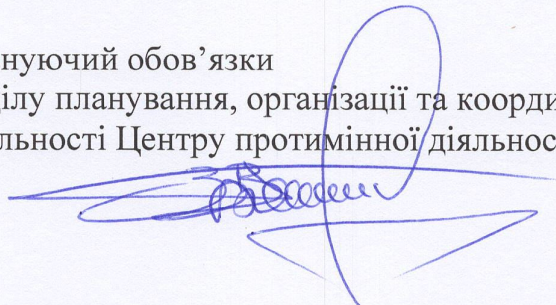 нуючий обов’язки
ілу планування, організації та коорди
льності Центру протимінної діяльнос